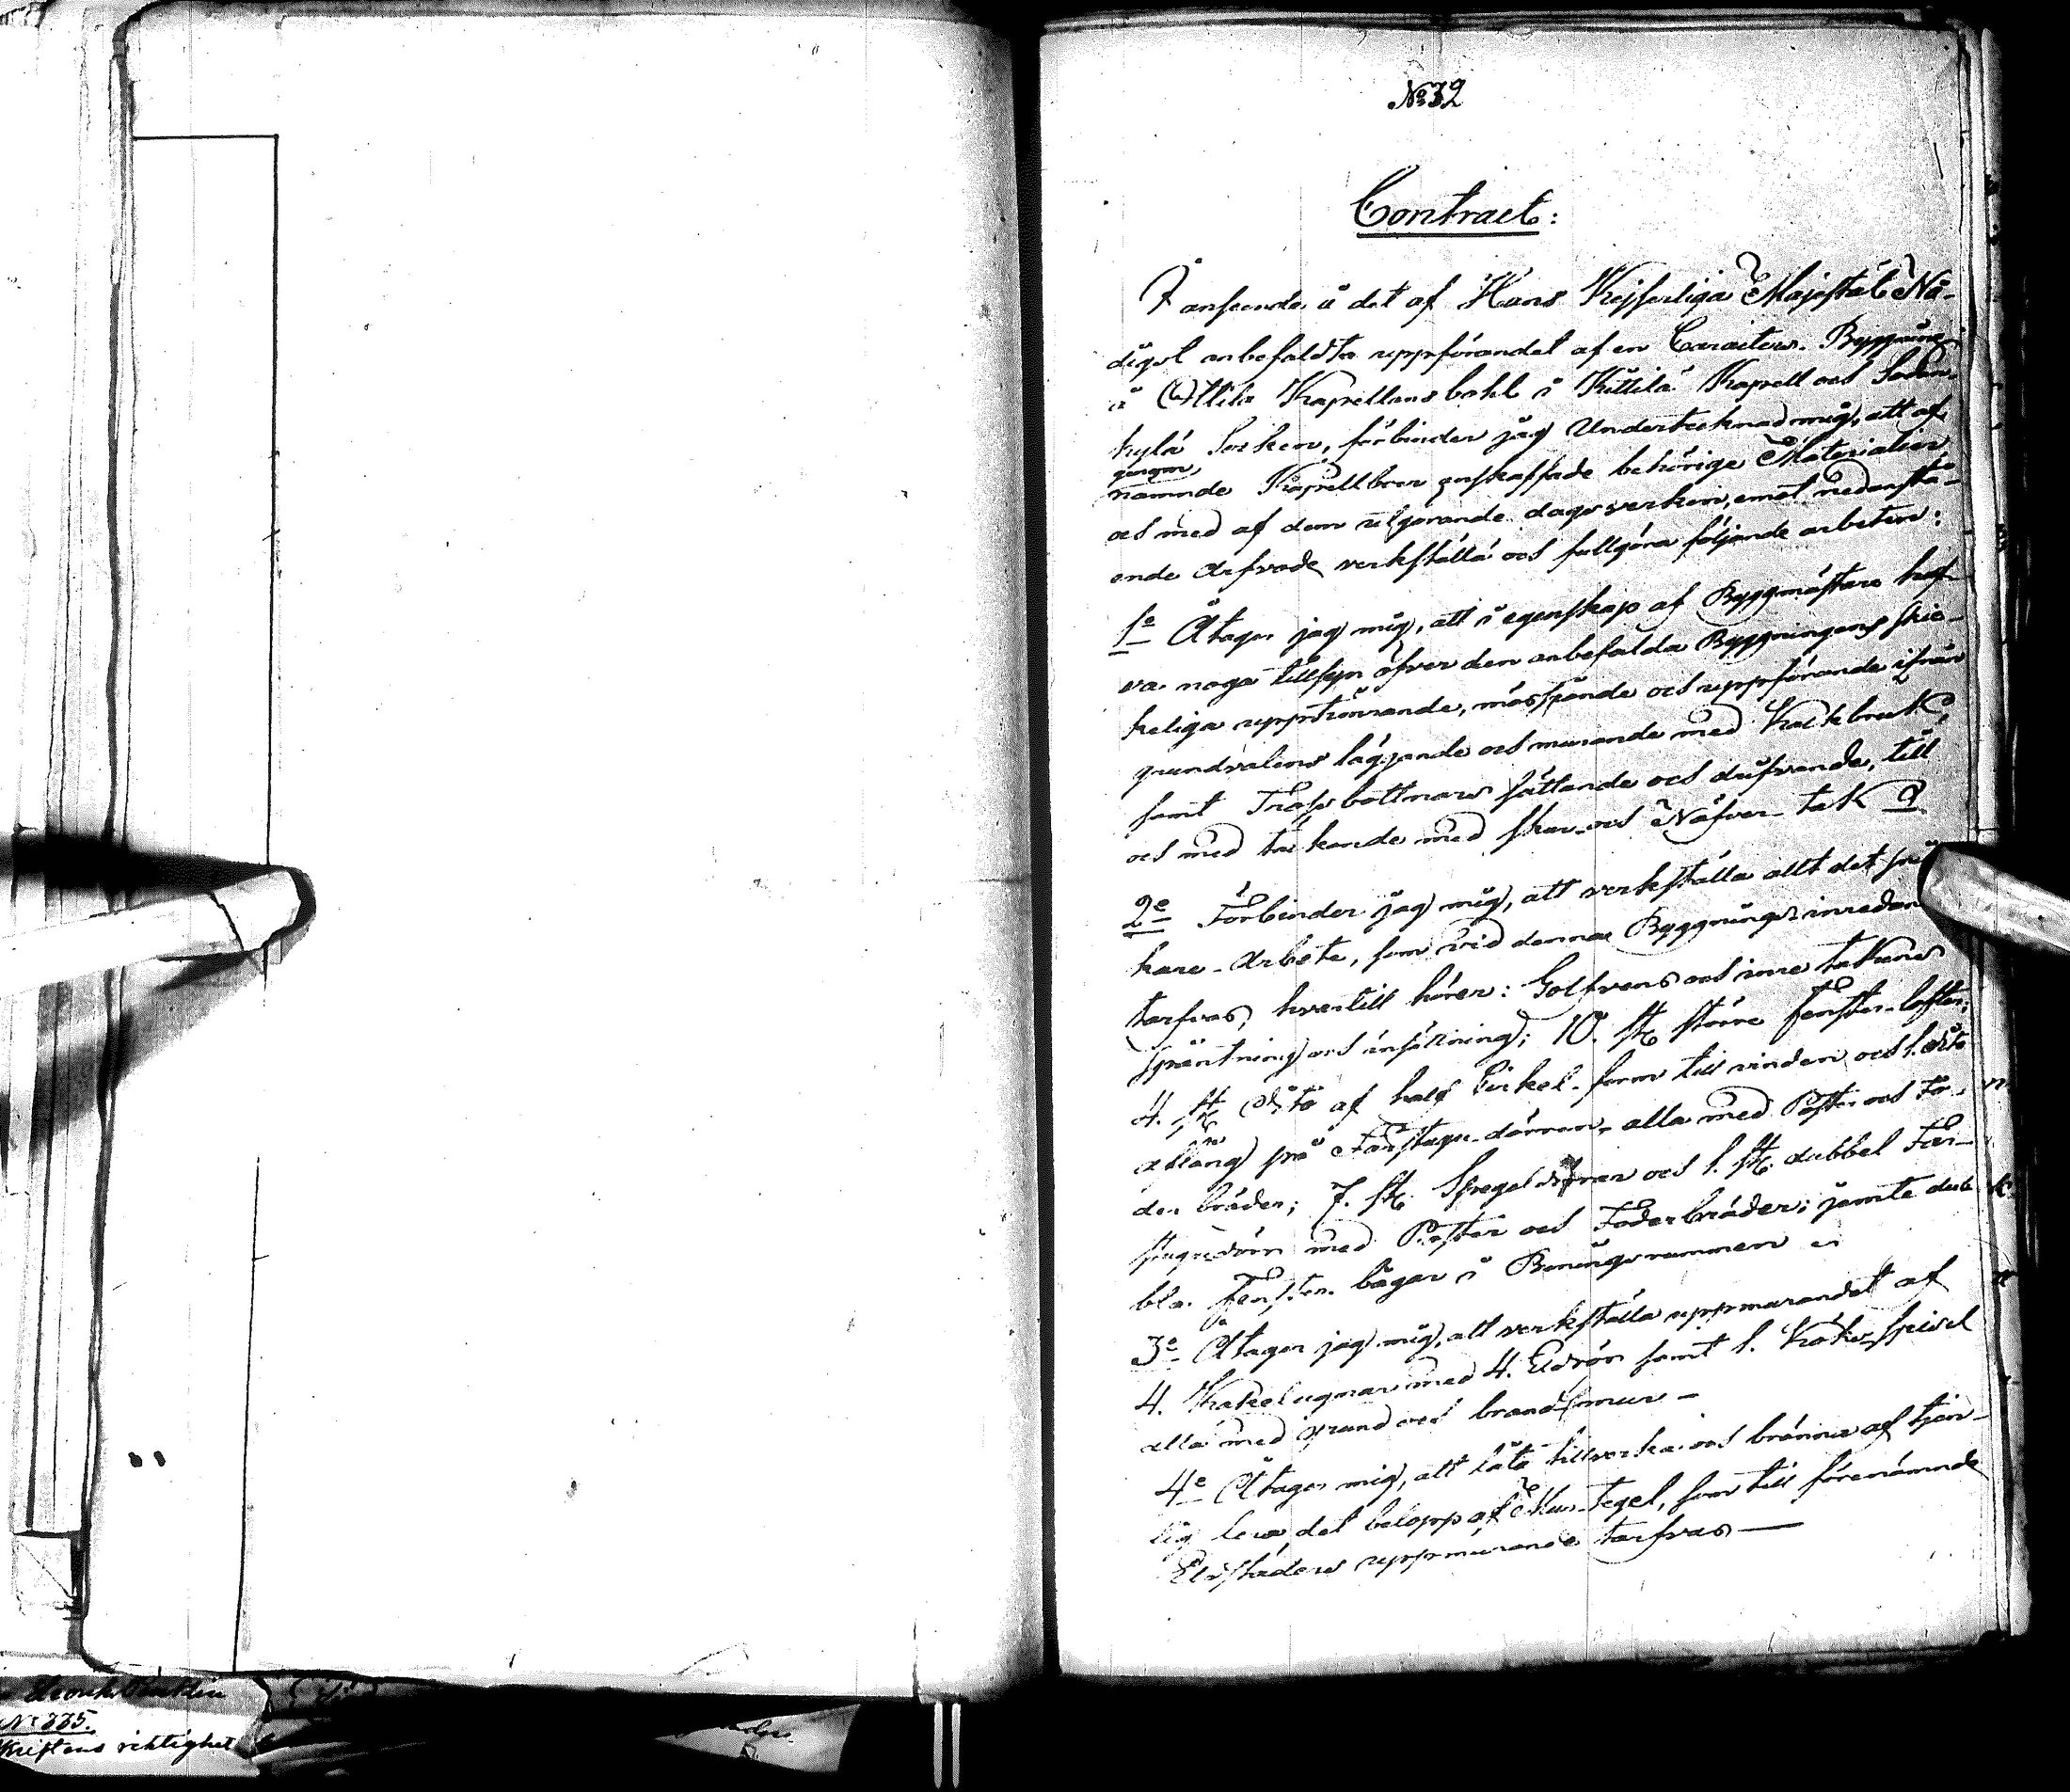 No 32
Contract:
I anseende å det af Hans Kejserliga Majestät Nå-
digst anbefaldta uppförandet af en Caracters-Byggning
å Ollila Kapellansbohl i Kittilä Kapell och Sodan-
kylä Socken, förbinder jag Undertecknad mig, att af
namnde Kapellboer anskaffade behörige Materialier
och med af dem utgörande dagsverken, emot nedanstå-
ende Arfvode verkställa och fullgöra följande arbeten:
1e Åtager jag mig, att i egenskap af Byggmästare haf-
va noga tillsyn öfver den anbefalda Byggningens skic-
keliga upptimrande, måssjande och uppförande ifrån
grundvalens läggande och murande med Kalkbruk,
samt Trossbottnars sättande och drifvande, till
och med täckande med skar- och Näfver-tak
2e Förbinder jag mig, att verkställa allt det
kare-Arbete, som vid denna Byggnings inredan
tarfvas, hvartill hörer: Golfvens och inre takens
spåntning och insättning; 10. st. större fenster-lufter;
4. st. Dito af half Cirkel-form till vinden och 1. Dito
aflång på Farstugu-dörren, alla med Poster och Fo-
der bräder; 7. st. Spegel dörrar och 1. st. dubbel Far-
stugudörr med Poster och Foderbräder; jemte dub-
bla Fenster bågar i Boningsrummen
3e Åtager jag mig, att verkställa uppmurandet af
4. Kakelugnar med 4. Eldrör samt 1. Köks-spisel
alla med grund och brandmur —
4e Åtager mig, att låta tillverka och bränna af tjen-
lig lera, det belopp af Mur-Tegel, som till förenämnde
Eldstäders uppmurande tarfvas —
No 335.
riktighet